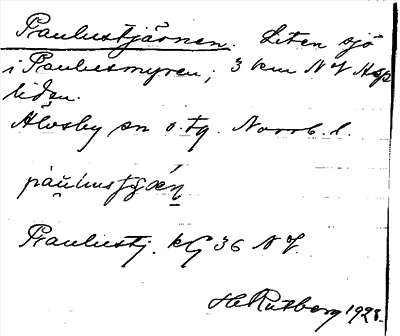 Paulustjärnen. Liten sjö
i Paulusmyren, 3 km NV Asp
liden.
Älvsby sn o. tg. Norrb. l.
Paulustj. kG 36 NV.
H. Rutberg 1928.